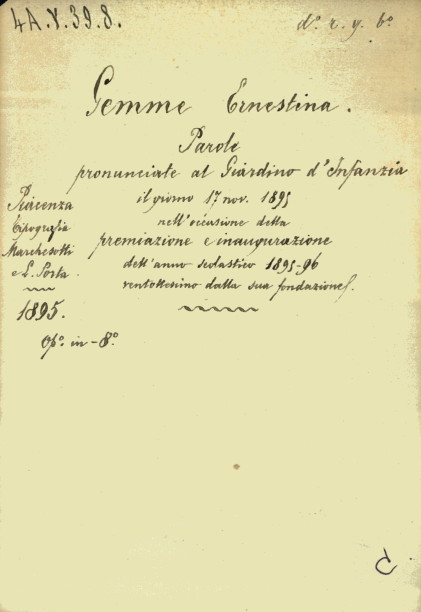 4A.V.39.8.
d.º r. g. b.º
Gemme Ernestina.
Parole
pronunciate al Giardino d'Infanzia
il giorno 17 nov. 1895
nell'occasione della
premiazione e inaugurazione
dell'anno scolastico 1895-96
ventottesimo dalla sua fondazione.
Piacenza
Tipografia
Marchesotti
e L. Porta.
1895.
op.º in-8.º
C